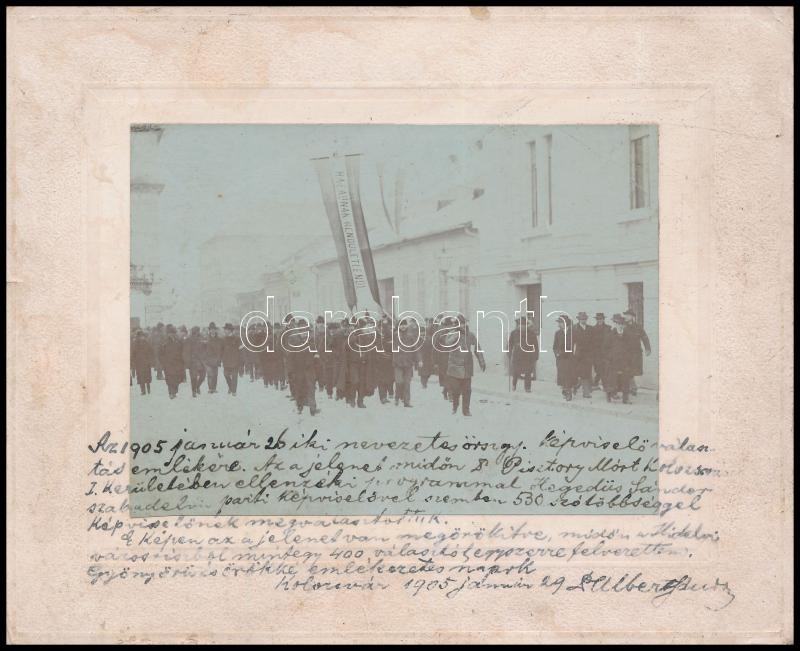 HALADUNK RENDÜLETLENÜL
darabanth
Az 1905 január 26 iki nevezetes országy. képviselő válasz-
tás emlékére. Az a jelenet midőn Dr Pisztory Mórt Kolozsvár
I. Kerületében ellenzéki programmal Hegedüs Sándor
szabadelvü párti képviselővel szemben 530 szótöbbséggel
Képviselőnek megválasztottuk.
E képen az a jelenet van megörökitve, midőn a Hidelvi
városrészből mintegy 400 választó egyszerre felvezettem.
Gyönyörüs örökké emlékezetes napok
Kolozsvár 1905 január 29 Albert